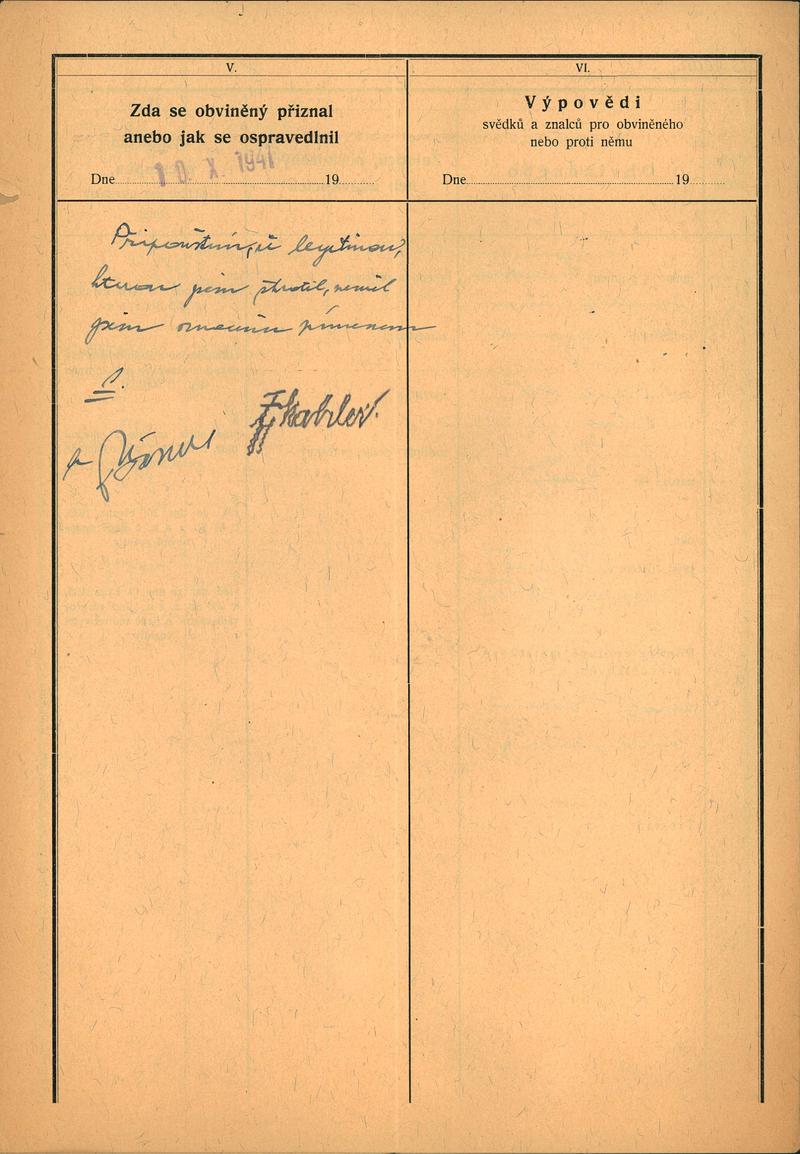 V.
Zda se obviněný přiznal
anebo jak se ospravedlnil
Dne 10. X. 1941 19
Připouštím, že legitimaci,
kterou jsem ztratil, neměl
jsem
VI.
Výpovědi
svědků a znalců pro obviněného
nebo proti němu
Dne 19